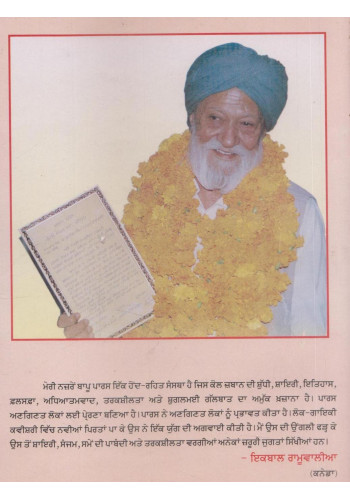 ਮੇਰੀ ਨਜ਼ਰੇ ਬਾਪੂ ਪਾਰਸ ਇੱਕ ਹੋਂਦ-ਰਹਿਤ ਸੰਸਥਾ ਹੈ ਜਿਸ ਕੋਲ ਜ਼ਬਾਨ ਦੀ ਸ਼ੁੱਧੀ, ਸ਼ਾਇਰੀ, ਇਤਿਹਾਸ,
ਫ਼ਲਸਫ਼ਾ, ਅਧਿਆਤਮਵਾਦ, ਤਰਕਸ਼ੀਲਤਾ ਅਤੇ ਸੁਗਲਮਈ ਗਲਿਬਾਤ ਦਾ ਅਮੁੱਕ ਖ਼ਜ਼ਾਨਾ ਹੈ। ਪਾਰਸ
ਅਣਗਿਣਤ ਲੋਕਾਂ ਲਈ ਪ੍ਰੇਰਣਾ ਬਣਿਆ ਹੈ। ਪਾਰਸ ਨੇ ਅਣਗਿਣਤ ਲੋਕਾਂ ਨੂੰ ਪ੍ਰਭਾਵਤ ਕੀਤਾ ਹੈ। ਲੋਕ-ਗਾਇਕੀ
ਕਵੀਸ਼ਰੀ ਵਿੱਚ ਨਵੀਆਂ ਪਿਰਤਾਂ ਪਾ ਕੇ ਉਸ ਨੇ ਇੱਕ ਯੁੱਗ ਦੀ ਅਗਵਾਈ ਕੀਤੀ ਹੈ। ਮੈਂ ਉਸ ਦੀ ਉਂਗਲੀ ਫੜ੍ਹ ਕੇ
ਉਸ ਤੋਂ ਸ਼ਾਇਰੀ, ਸੰਜਮ, ਸਮੇਂ ਦੀ ਪਾਬੰਦੀ ਅਤੇ ਤਰਕਸ਼ੀਲਤਾ ਵਰਗੀਆਂ ਅਨੇਕਾਂ ਜ਼ਰੂਰੀ ਜੁਗਤਾਂ ਸਿੱਖੀਆਂ ਹਨ।
- ਇਕਬਾਲ ਰਾਮੂਵਾਲੀਆ
(ਕਨੇਡਾ)